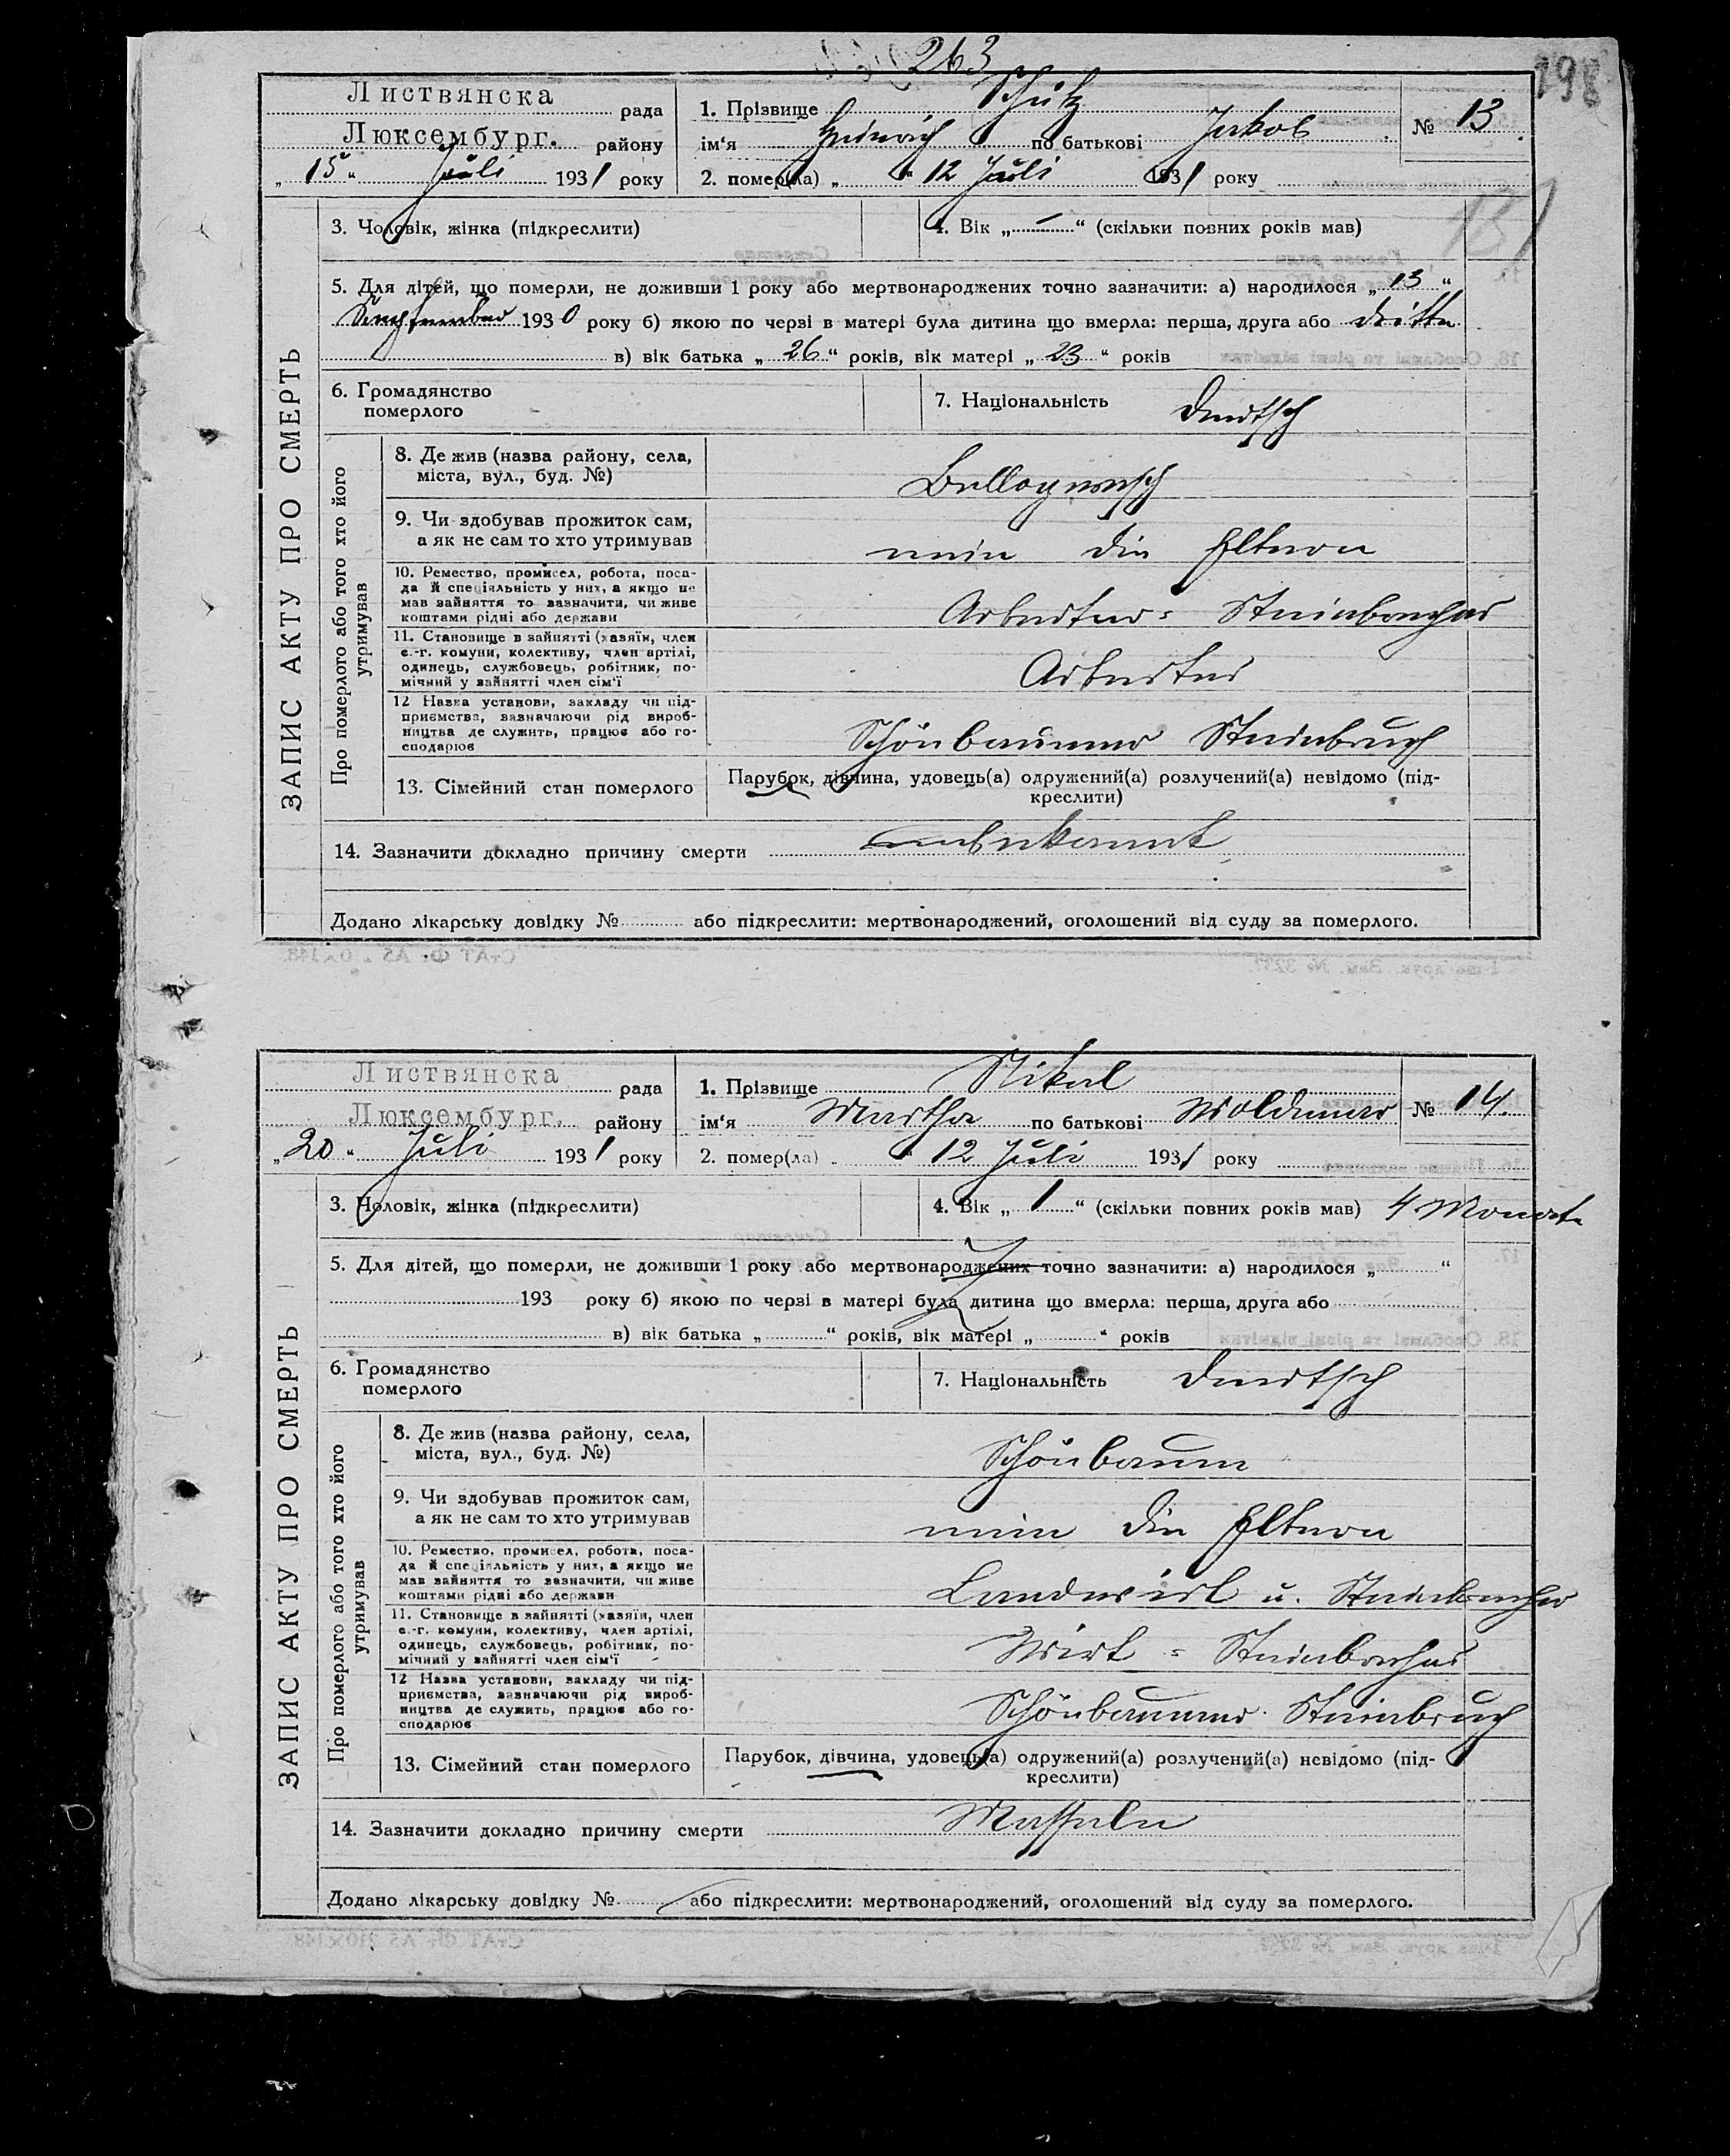 263
198
Листвянска рада
Люксембург. району
„ 15 “ Juli 1931 року
1. Прізвище Schütz
ім‘я Heinrich по батькові Jakob
2. помер(ла) „ “ 12 Juli 1931 року
№ 13.
131
ЗАПИС АКТУ ПРО СМЕРТЬ
3. Чоловік, жінка (підкреслити)
4. Вік „ — “ (скільки повних років мав)
5. Для дітей, що померли, не доживши 1 року або мертвонароджених точно зазначити: а) народилося „ 13 “
September 1930 року б) якою по черзі в матері була дитина що вмерла: перша, друга або dritte
в) вік батька „ 26 “ років, вік матері „ 23 “ років
6. Громадянство
померлого
7. Національність Deutsch
Про померлого або того хто його
утримував
8. Де жив (назва району, села,
міста, вул., буд. №)
9. Чи здобував прожиток сам,
а як не сам то хто утримував
nein die Eltern
10. Ремество, промисел, робота, поса-
да й спеціяльність у них, а якщо не
мав зайняття то зазначити, чи живе
коштами рідні або держави
Arbeiter = Steinbrecher
11. Становище в зайнятті (хазяїн, член
с.-г. комуни, колективу, член артілі,
одинець, службовець, робітник, по-
мічний у зайнятті член сім‘ї
Arbeiter
12 Назва установи, закладу чи під-
приємства, зазначаючи рід вироб-
ництва де служить, працює або го-
сподарює
Schönbaumer Steinbruch
13. Сімейний стан померлого
Парубок, дівчина, удовець(а) одружений(а) розлучений(а) невідомо (під-
креслити)
14. Зазначити докладно причину смерти unbekannt
Додано лікарську довідку № або підкреслити: мертвонароджений, оголошений від суду за померлого.
Листвянска рада
Люксембург. району
„ 20 “ Juli 1931 року
1. Прізвище Nikel
ім‘я Martha по батькові Woldemar
2. помер(ла) „ “ 12 Juli 1931 року
№ 14.
ЗАПИС АКТУ ПРО СМЕРТЬ
3. Чоловік, жінка (підкреслити)
4. Вік „ 1 “ (скільки повних років мав) 4 Monate
5. Для дітей, що померли, не доживши 1 року або мертвонароджених точно зазначити: а) народилося „ “
193 року б) якою по черзі в матері була дитина що вмерла: перша, друга або
в) вік батька „ “ років, вік матері „ “ років
6. Громадянство
померлого
7. Національність Deutsch
Про померлого або того хто його
утримував
8. Де жив (назва району, села,
міста, вул., буд. №)
Schönbaum
9. Чи здобував прожиток сам,
а як не сам то хто утримував
nein die Eltern
10. Ремество, промисел, робота, поса-
да й спеціяльність у них, а якщо не
мав зайняття то зазначити, чи живе
коштами рідні або держави
Landwirt u. Steinbrecher
11. Становище в зайнятті (хазяїн, член
с.-г. комуни, колективу, член артілі,
одинець, службовець, робітник, по-
мічний у зайнятті член сім‘ї
Wirt = Steinbrecher
12 Назва установи, закладу чи під-
приємства, зазначаючи рід вироб-
ництва де служить, працює або го-
сподарює
Schönbaumer Steinbruch
13. Сімейний стан померлого
Парубок, дівчина, удовець(а) одружений(а) розлучений(а) невідомо (під-
креслити)
14. Зазначити докладно причину смерти Masseln
Додано лікарську довідку № або підкреслити: мертвонароджений, оголошений від суду за померлого.